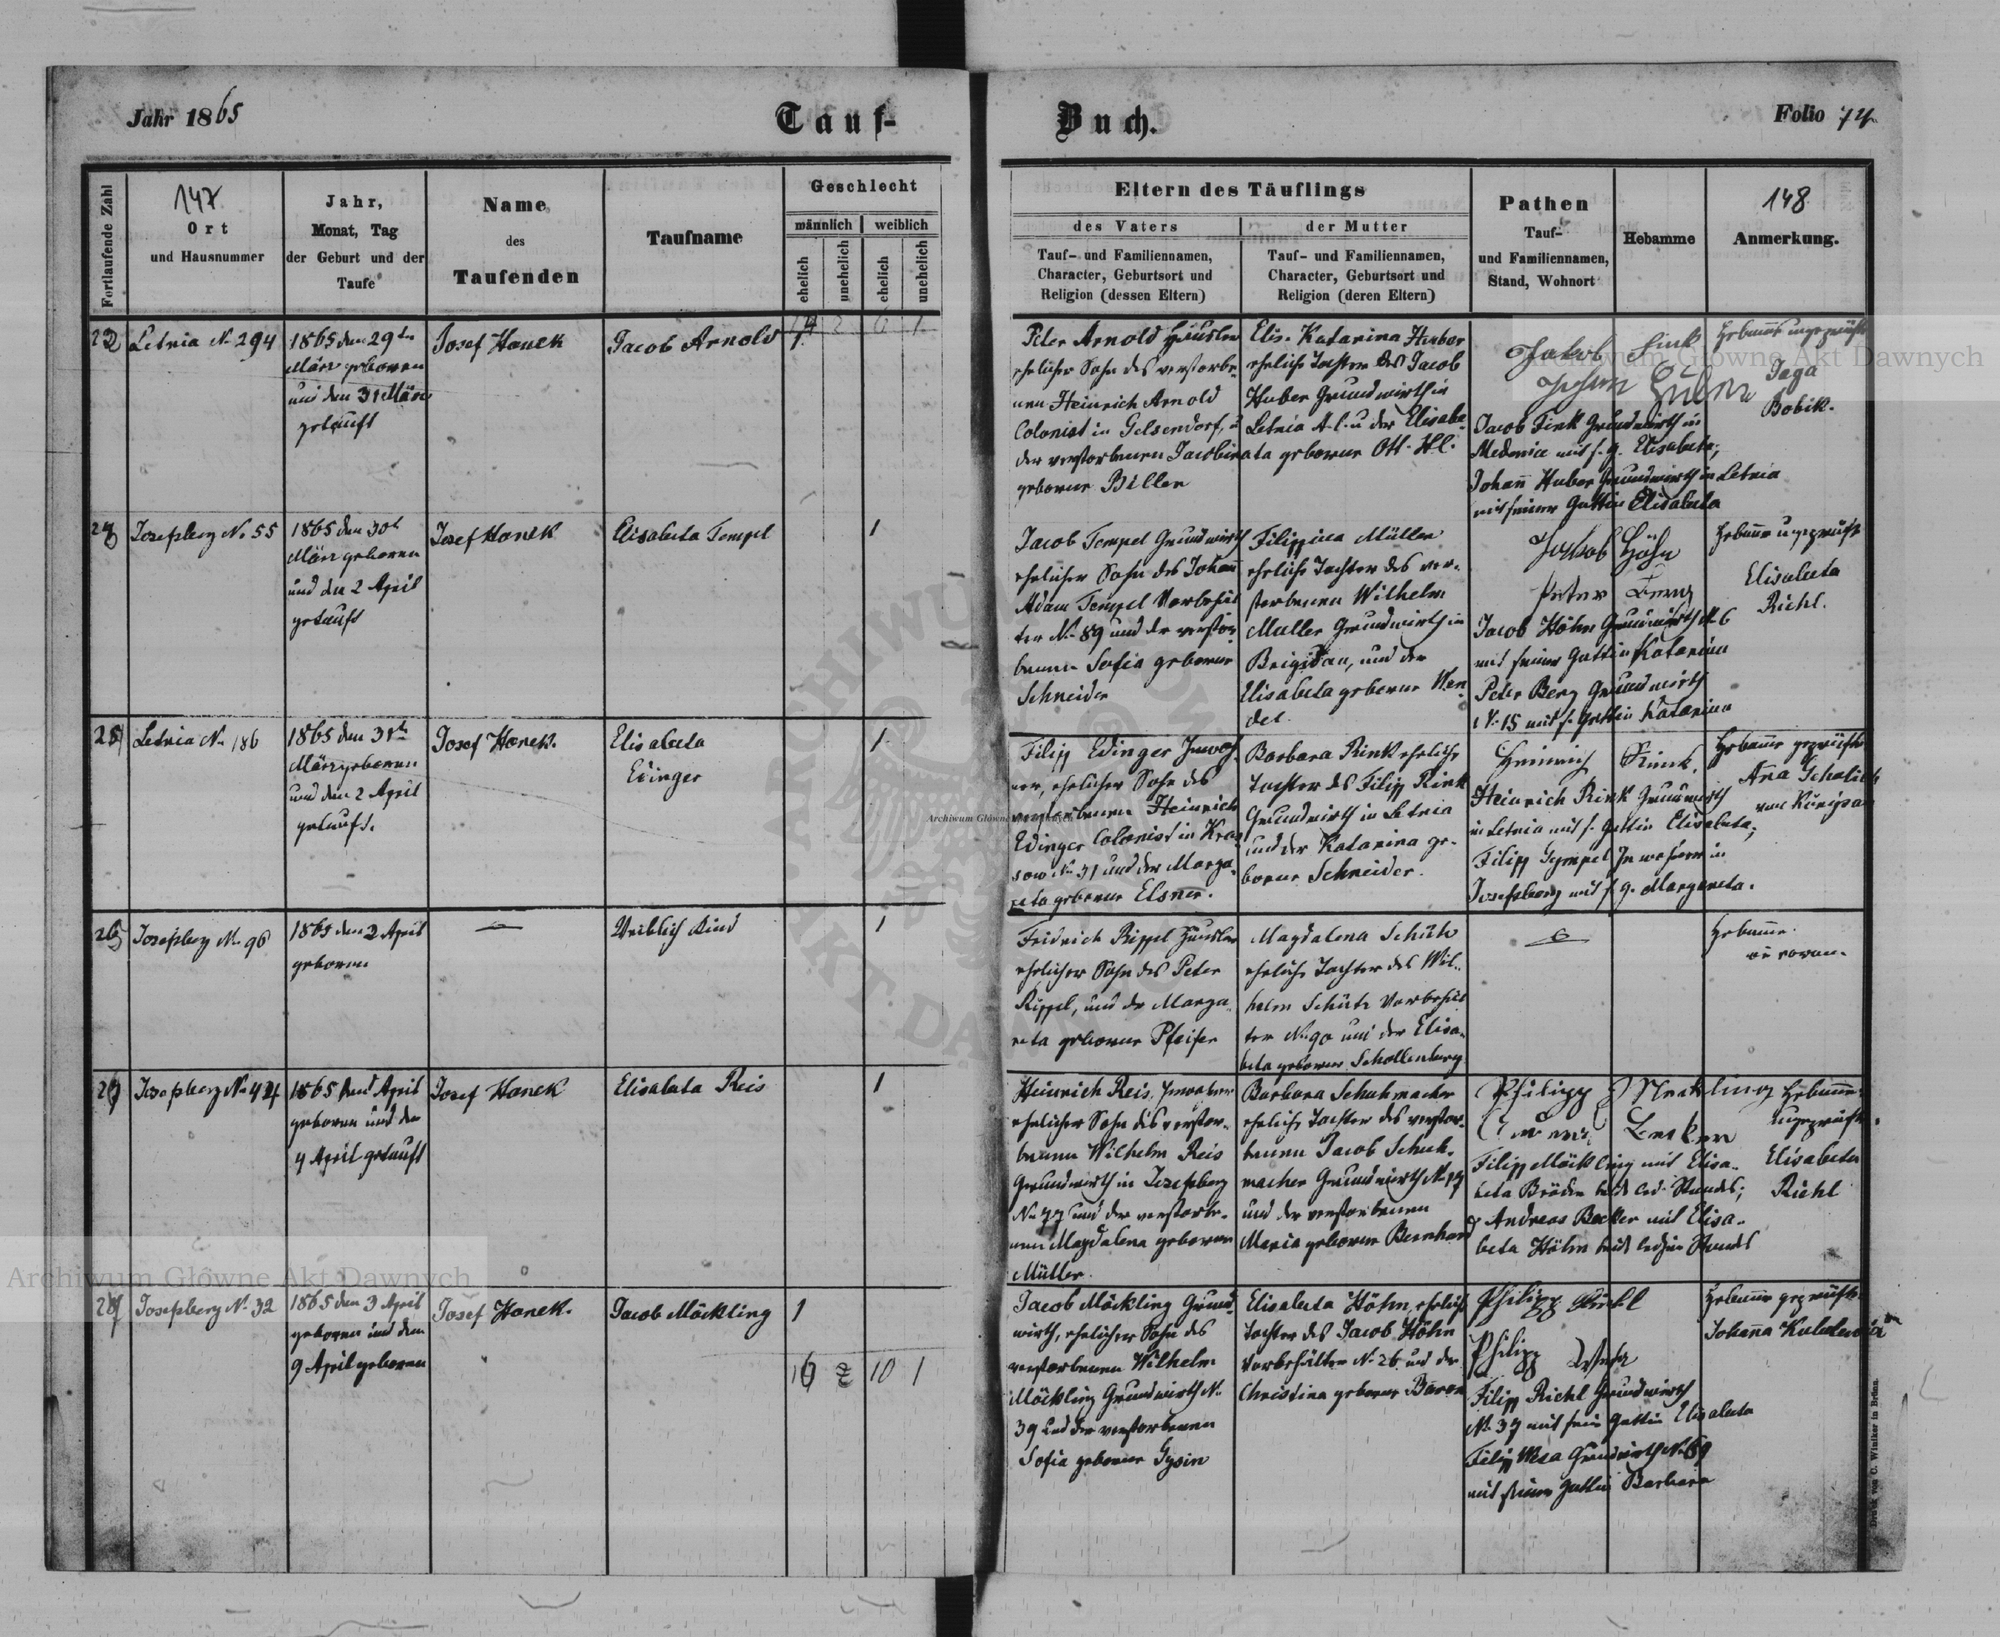 Jahr 1865
Tauf-
Buch.
Folio 74
Fortlaufende Zahl
147
Ort
und Hausnummer
Jahr,
Monat, Tag
der Geburt und der
Taufe
Name
des
Taufenden
Taufname
Geschlecht
männlich
weiblich
ehelich
unehelich
ehelich
unehelich
Eltern des Täuflings
des Vaters
der Mutter
Tauf- und Familiennamen,
Character, Geburtsort und
Religion (dessen Eltern)
Tauf- und Familiennamen,
Character, Geburtsort und
Religion (deren Eltern)
Pathen
Tauf-
und Familiennamen,
Stand, Wohnort
Hebamme
148
Anmerkung.
Letnia N. 294
1865 den 29
März geboren
und den 31 März
getauft
Josef Hanek
Jacob Arnold
1
Peter Arnold Häusler
ehelicher Sohn des verstorbe-
nen Heinrich Arnold
Colonist in Gelsendorf, u
der verstorbenen Jacobina
geborne Biller
Elis. Katarina Huber
eheliche Tochter des Jacob
Huber Grundwirth in
Letnia A. C. u der Elisabe-
ta geborne Ott. H.C.
Jakob Fink
Johan Huber
Jacob Fink Grundwirth in
Medenice mit s. g. Elisabeta;
Johann Huber Grundwirth in Letnia
mit seiner Gattin Elisabeta
Hebamme ungeprüft
Jaga
Bobik.
Josefsberg N. 55
1865 den 30
März geboren
und den 2 April
getauft
Josef Hanek
Elisabeta Tempel
1
Jacob Tempel Grundwirth
ehelicher Sohn des Johann
Adam Tempel Vorbehäl
ter N. 89 und der verstor
benen Sofia geborne
Schneider
Filippina Müller
eheliche Tochter des ver-
storbenen Wilhelm
Muller Grundwirth in
Brigidau, und der
Elisabeta geborne Wen
del.
Jakob Höhn
Peter Berg
Jacob Höhn Grundwirth N. 6
mit seiner Gattin Katarina
Peter Berg Grundwirth
N. 15 mit s. Gattin Katarina
Hebamme ungeprüft
Elisabeta
Richl.
Letnia N. 186
1865 den 31
März geboren
und den 2 April
getauft.
Josef Hanek.
Elisabeta
Edinger
1
Filipp Edinger Inwoh
ner, ehelicher Sohn des
verstorbenen Heinrich
Edinger Colonist in Kra
sow N. 31 und der Marga-
reta geborne Elsner.
Barbara Rink eheliche
Tochter des Filipp Rink
Grundwirth in Letnia
und der Katarina ge-
borne Schneider.
Heinrich Rink.
Heinrich Rink Grundwirth
in Letnia mit s. Gattin Elisabeta;
Filipp Tempel Inwohner in
Josefsberg mit s. g. Margareta.
Hebamme geprüft
Anna Schalich
von Königsau
Josefsberg N. 96
1865 den 2 April
geboren
—
Weiblich Kind
1
Fridrich Rippel Häusler
ehelicher Sohn des Peter
Rippel, und der Marga
reta geborne Pfeifer
Magdalena Schütz
eheliche Tochter des Wil-
helm Schütz Vorbehäl
ter N. 90 und der Elisa-
beta geborne Schollenberg
Hebamme
Josefsberg N. 42
1865 den April
geboren und den
4 April getauft
Josef Hanek
Elisabeta Reis
1
Heinrich Reis, Inwohner
ehelicher Sohn des verstor-
benen Wilhelm Reis
Grundwirth in Josefsberg
N. 77 und der verstorbe-
nen Magdalena geborne
Müller.
Barbara Schuhmacher
eheliche Tochter des verstor-
benen Jacob Schuh-
macher Grundwirth N. 17
und der verstorbenen
Maria geborne Bernhard
Philipp Mecklling
Becker
Filipp Möckling mit Elisa-
beta Bröder beide led. Standes;
Andreas Becker mit Elisa-
beta Höhn beide ledigen Standes
Hebamme
ungeprüft.
Elisabeta
Richl
Josefsberg N. 32
1865 den 3 April
geboren und den
9 April geboren
Josef Hanek.
Jacob Möckling
1
10 1
Jacob Möckling Grund-
wirth, ehelicher Sohn des
verstorbenen Wilhelm
Möckling Grundwirth N.
39 und der verstorbenen
Sofia geborne Gysin
Elisabeta Höhn, ehelich
Tochter des Jacob Höhn
Vorbehälter N. 26 und der
Christina geborne Baron
Philipp Richl
Philipp Wesa
Filipp Richl Grundwirth
N. 37 mit sein Gattin Elisabeta
Filipp Wesa Grundwirth N. 59
mit seiner Gattin Barbara
Hebamme geprüft
Johanna
Druck von C. Winiker in Brünn.
Archiwum Główne Akt Dawnych
Archiwum Główne Akt Dawnych